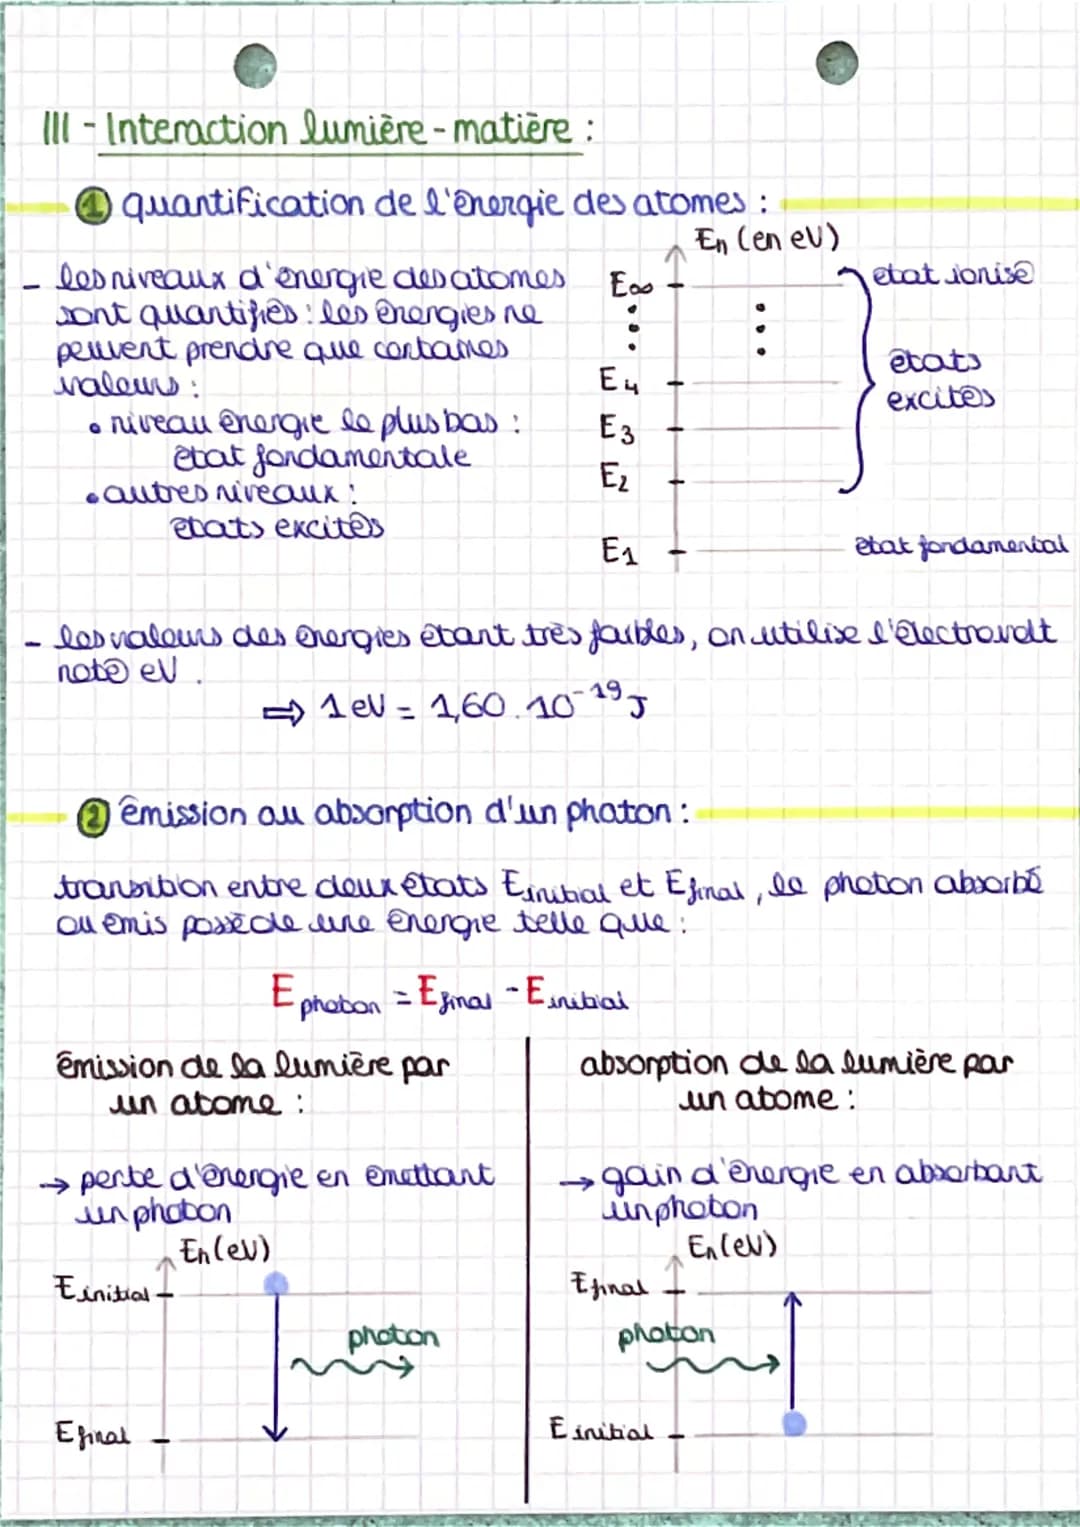 III - Interaction lumière - matière :
1 quantification de l'énergie des atomes :
En (en eV)
- les niveaux d'énergie des atomes
sont quantifiés : les énergies ne
peuvent prendre que certaines
valeurs :
• niveau énergie le plus bas :
état fondamentale
• autres niveaux :
états excités
E∞
E4
E3
E2
E1
état ionisé
états
excités
état fondamental
- les valeurs des énergies étant très faibles, on utilise l'électronvolt
noté eV .
⇒ 1 eV = 1,60 . 10⁻¹⁹ J
2 émission ou absorption d'un photon :
transition entre deux états Einitial et Efinal , le photon absorbé
ou émis possède une énergie telle que :
E photon = E final - E initial
émission de la lumière par
un atome :
→ perte d'énergie en émettant
un photon
En (eV)
E initial
photon
E final
absorption de la lumière par
un atome :
→ gain d'énergie en absorbant
un photon
En (eV)
E final
photon
E initial